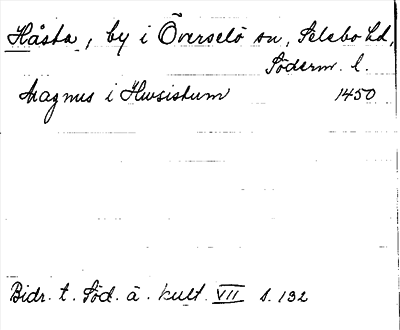 Håsta, by i Överselö sn, Selebo hd,
Söderm. l.
Magnus i Husistum 1450
Bidr. t. Söd. ä. kult. VII s. 132